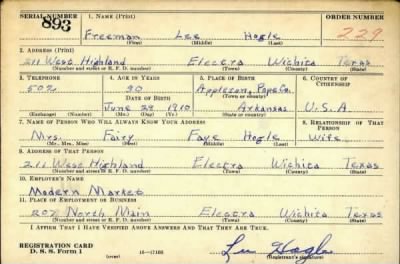 SERIAL NUMBER 1. NAME (Print) ORDER NUMBER
893 Freeman Lee Hogle 229
(First) (Middle) (Last)
2. ADDRESS (Print)
211 West Highland Electra Wichita Texas
(Number and street or R. F. D. number) (Town) (County) (State)
3. TELEPHONE 4. AGE IN YEARS 5. PLACE OF BIRTH 6. COUNTRY OF CITIZENSHIP
502 30 Appleton, Pope Co.
DATE OF BIRTH (Town or county)
June 29 1910 Arkansas U.S.A.
(Exchange) (Number) (Mo.) (Day) (Yr.) (State or country)
7. NAME OF PERSON WHO WILL ALWAYS KNOW YOUR ADDRESS 8. RELATIONSHIP OF THAT PERSON
Mrs. Fairy Faye Hogle Wife
(Mr., Mrs., Miss) (First) (Middle) (Last)
9. ADDRESS OF THAT PERSON
211 West Highland Electra Wichita Texas
(Number and street or R. F. D. number) (Town) (County) (State)
10. EMPLOYER'S NAME
Modern Market
11. PLACE OF EMPLOYMENT OR BUSINESS
207 North Main Electra Wichita Texas
(Number and street or R. F. D. number) (Town) (County) (State)
I AFFIRM THAT I HAVE VERIFIED ABOVE ANSWERS AND THAT THEY ARE TRUE.
REGISTRATION CARD
D. S. S. Form 1 (over) 16—17105 Lee Hogle
(Registrant's signature)